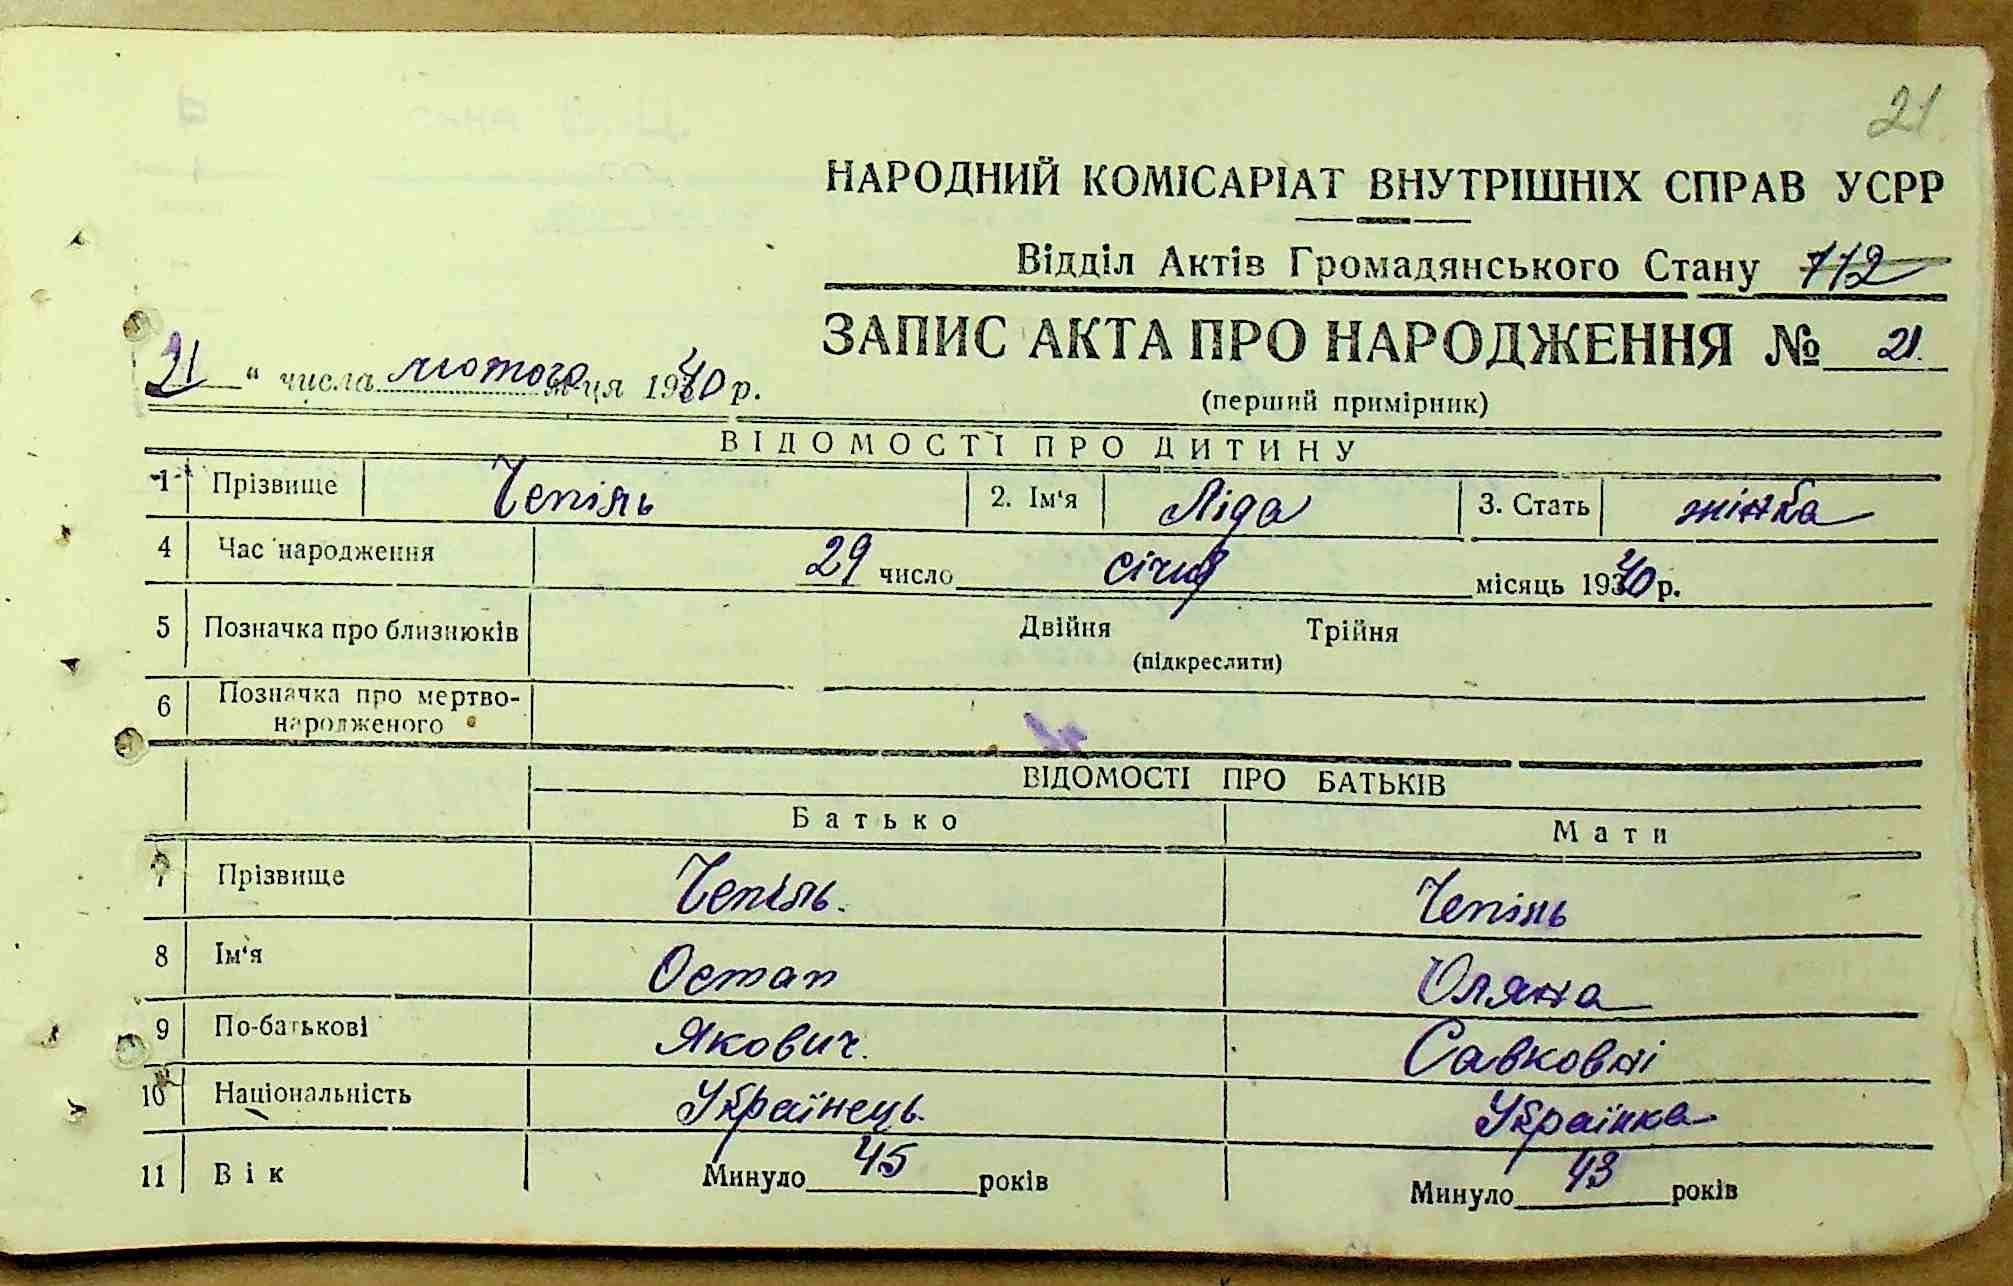 21
НАРОДНИЙ КОМІСАРІАТ ВНУТРІШНІХ СПРАВ УСРР
Відділ Актів Громадянського Стану 112
ЗАПИС АКТА ПРО НАРОДЖЕННЯ № 21.
21 " числа лютого м-ця 1940 р.
(перший примірник)
ВІДОМОСТІ ПРО ДИТИНУ
1 Прізвище Чепіль 2. Ім'я Ліда 3. Стать жінка
4 Час народження 29 число січня місяць 1940 р.
5 Позначка про близнюків Двійня Трійня
(підкреслити)
6 Позначка про мертво-
народженого
ВІДОМОСТІ ПРО БАТЬКІВ
Батько Мати
7 Прізвище Чепіль. Чепіль
8 Ім'я Остап Оляна
9 По-батькові Якович. Савковні
10 Національність Українець. Українка
11 Вік Минуло 45 років Минуло 43 років